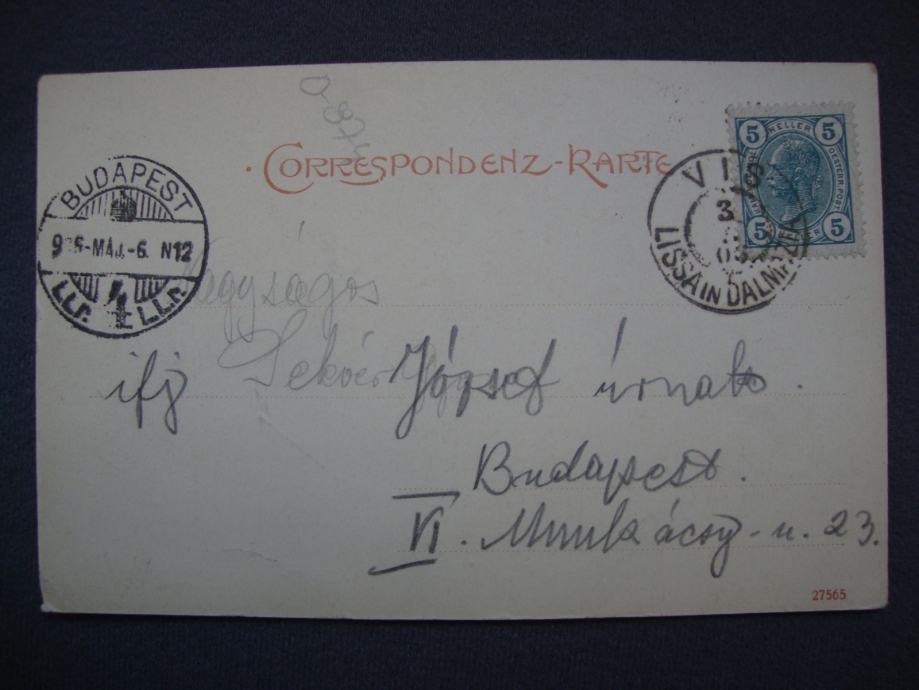 CORRESPONDENZ-KARTE
5 HELLER 5
5 HELLER 5
VIS
LISSA IN DALMAZIA
3
05
BUDAPEST
905-MÁJ.-6. N12
4
Nagyságos
ifj József úrnak.
Budapest.
VI. Munkácsy-u. 23.
27565